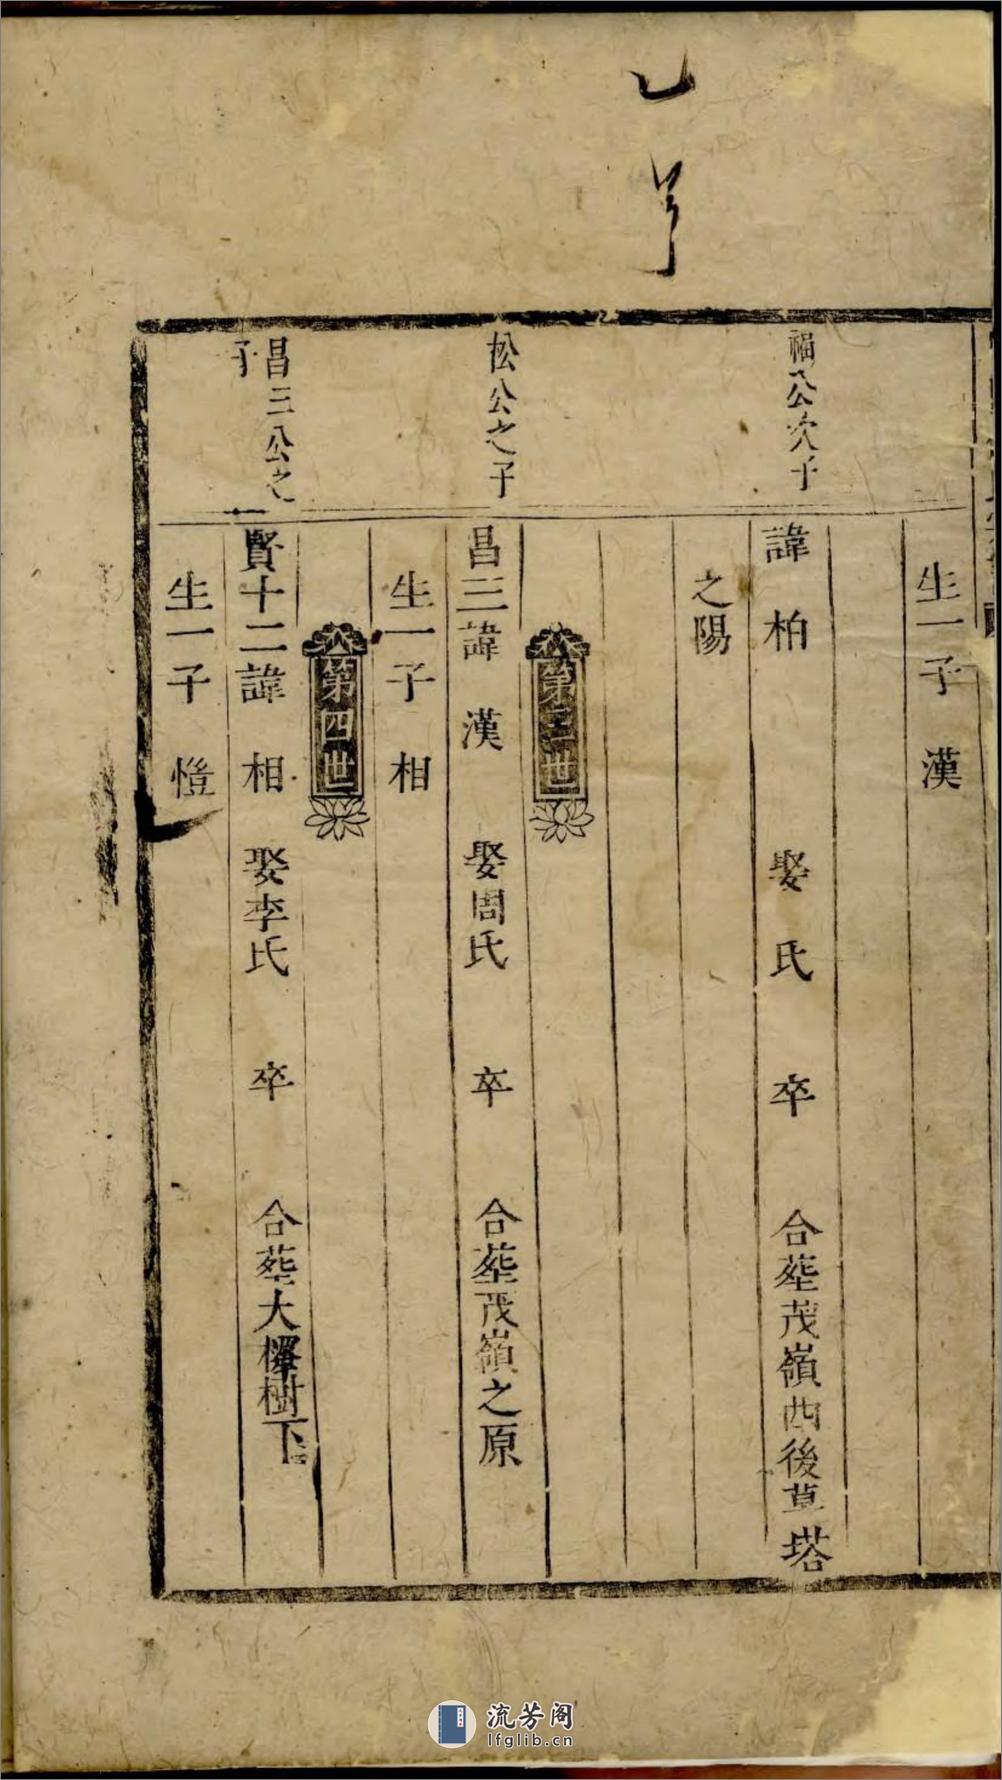 生一子　漢
福公次子
諱　柏　娶　氏　卒　合葬茂嶺西後草塔
之陽
第三世
松公之子
昌三諱　漢　娶周氏　卒　合葬茂嶺之原
生一子　相
第四世
昌三公之
子
賢十二諱　相　娶李氏　卒　合葬大樹下
生一子　愷
流芳阁
lfglib.cn